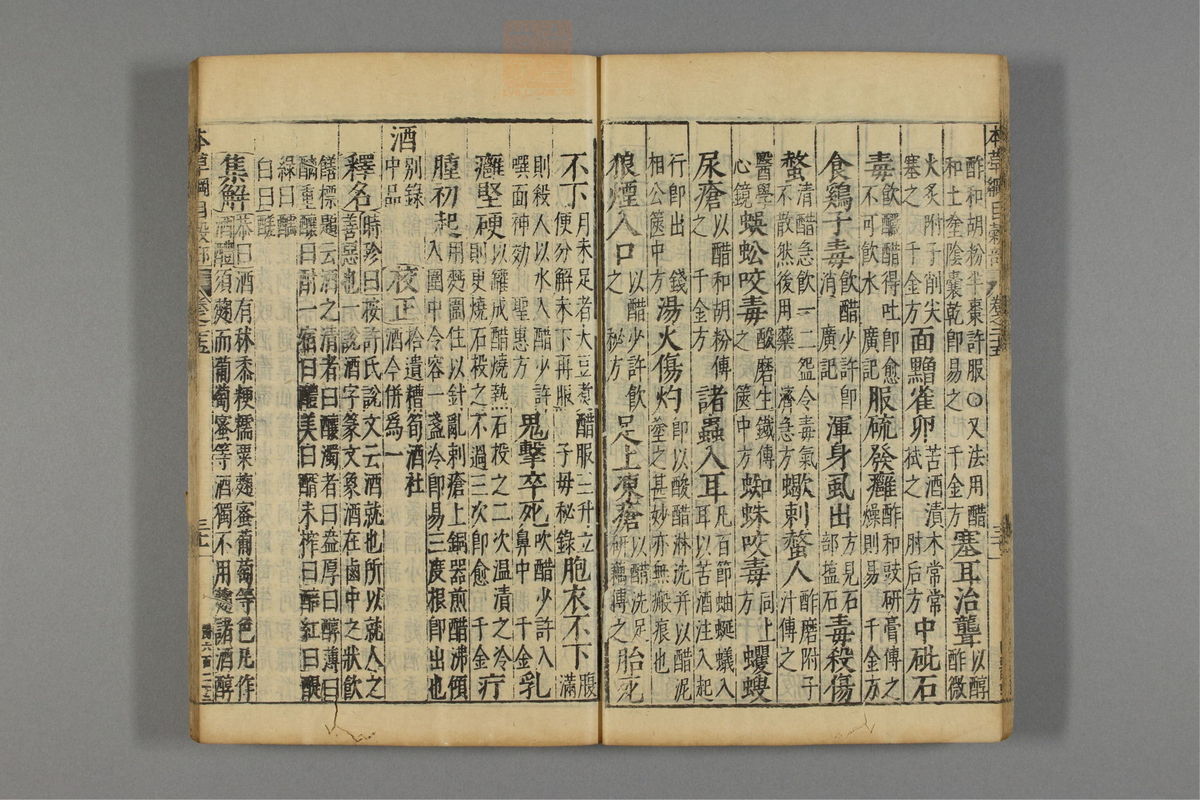 本草綱目穀部 卷之二十五
酢和胡粉半棗許服〇又法用醋和土塗陰囊乾即易之 千金方 塞耳治聾 以醇酢微
火炙附子削尖塞之 千金方 面䵟雀卵 苦酒漬术常常拭之 肘后方 中砒石
毒 飲釅醋得吐即愈不可飲水 廣記 服硫發癰 酢和豉研膏傅之燥則易 千金方
食鷄子毒 飲醋少許即消 廣記 渾身虱出 方見石部塩石 毒殺傷
螫 清醋急飲一二盌令毒氣不散然後用藥 濟急方 蠍刺螫人 酢磨附子汁傅之
醫學心鏡 蜈蚣咬毒 酸磨生鐵傅之 篋中方 蜘蛛咬毒 同上方 蠼螋
尿瘡 以醋和胡粉傅之 千金方 諸蟲入耳 凡百節蚰蜒蟻入耳以苦酒注入起
行即出 錢相公篋中方 湯火傷灼 即以酸醋淋洗并以醋泥塗之甚妙亦無瘢痕也
狼煙入口 以醋少許飲之 秘方 足上凍瘡 以醋洗足研藕傅之 胎死
不下 月未足者大豆煑醋服三升立便分解未下再服 子母秘錄 胞衣不下 腹滿
則殺人以水入醋少許噀面神効 聖惠方 鬼擊卒死 吹醋少許入鼻中 千金 乳
癰堅硬 以罐盛醋燒熱石投之二次温漬之冷則更燒石投之不過三次即愈 千金 疔
腫初起 用麪圍住以針亂刺瘡上銅器煎醋沸傾入圍中令容一盞冷即易三度根即出也
酒 別錄中品 校正 拾遺糟筍酒社酒今併爲一
釋名 時珍曰按許氏說文云酒就也所以就人之善惡也一說酒字篆文象酒在卣中之狀飲
饍標題云酒之清者曰釀濁者曰盎厚曰醇薄曰醨重釀曰酎一宿曰醴美曰醑未榨曰醅紅曰醍
綠曰醽白曰醝
集解 恭曰酒有秫黍粳糯粟麴蜜葡萄等色凡作酒醴須麴而葡萄蜜等酒獨不用麴諸酒醇
本草綱目穀部 卷之二十五